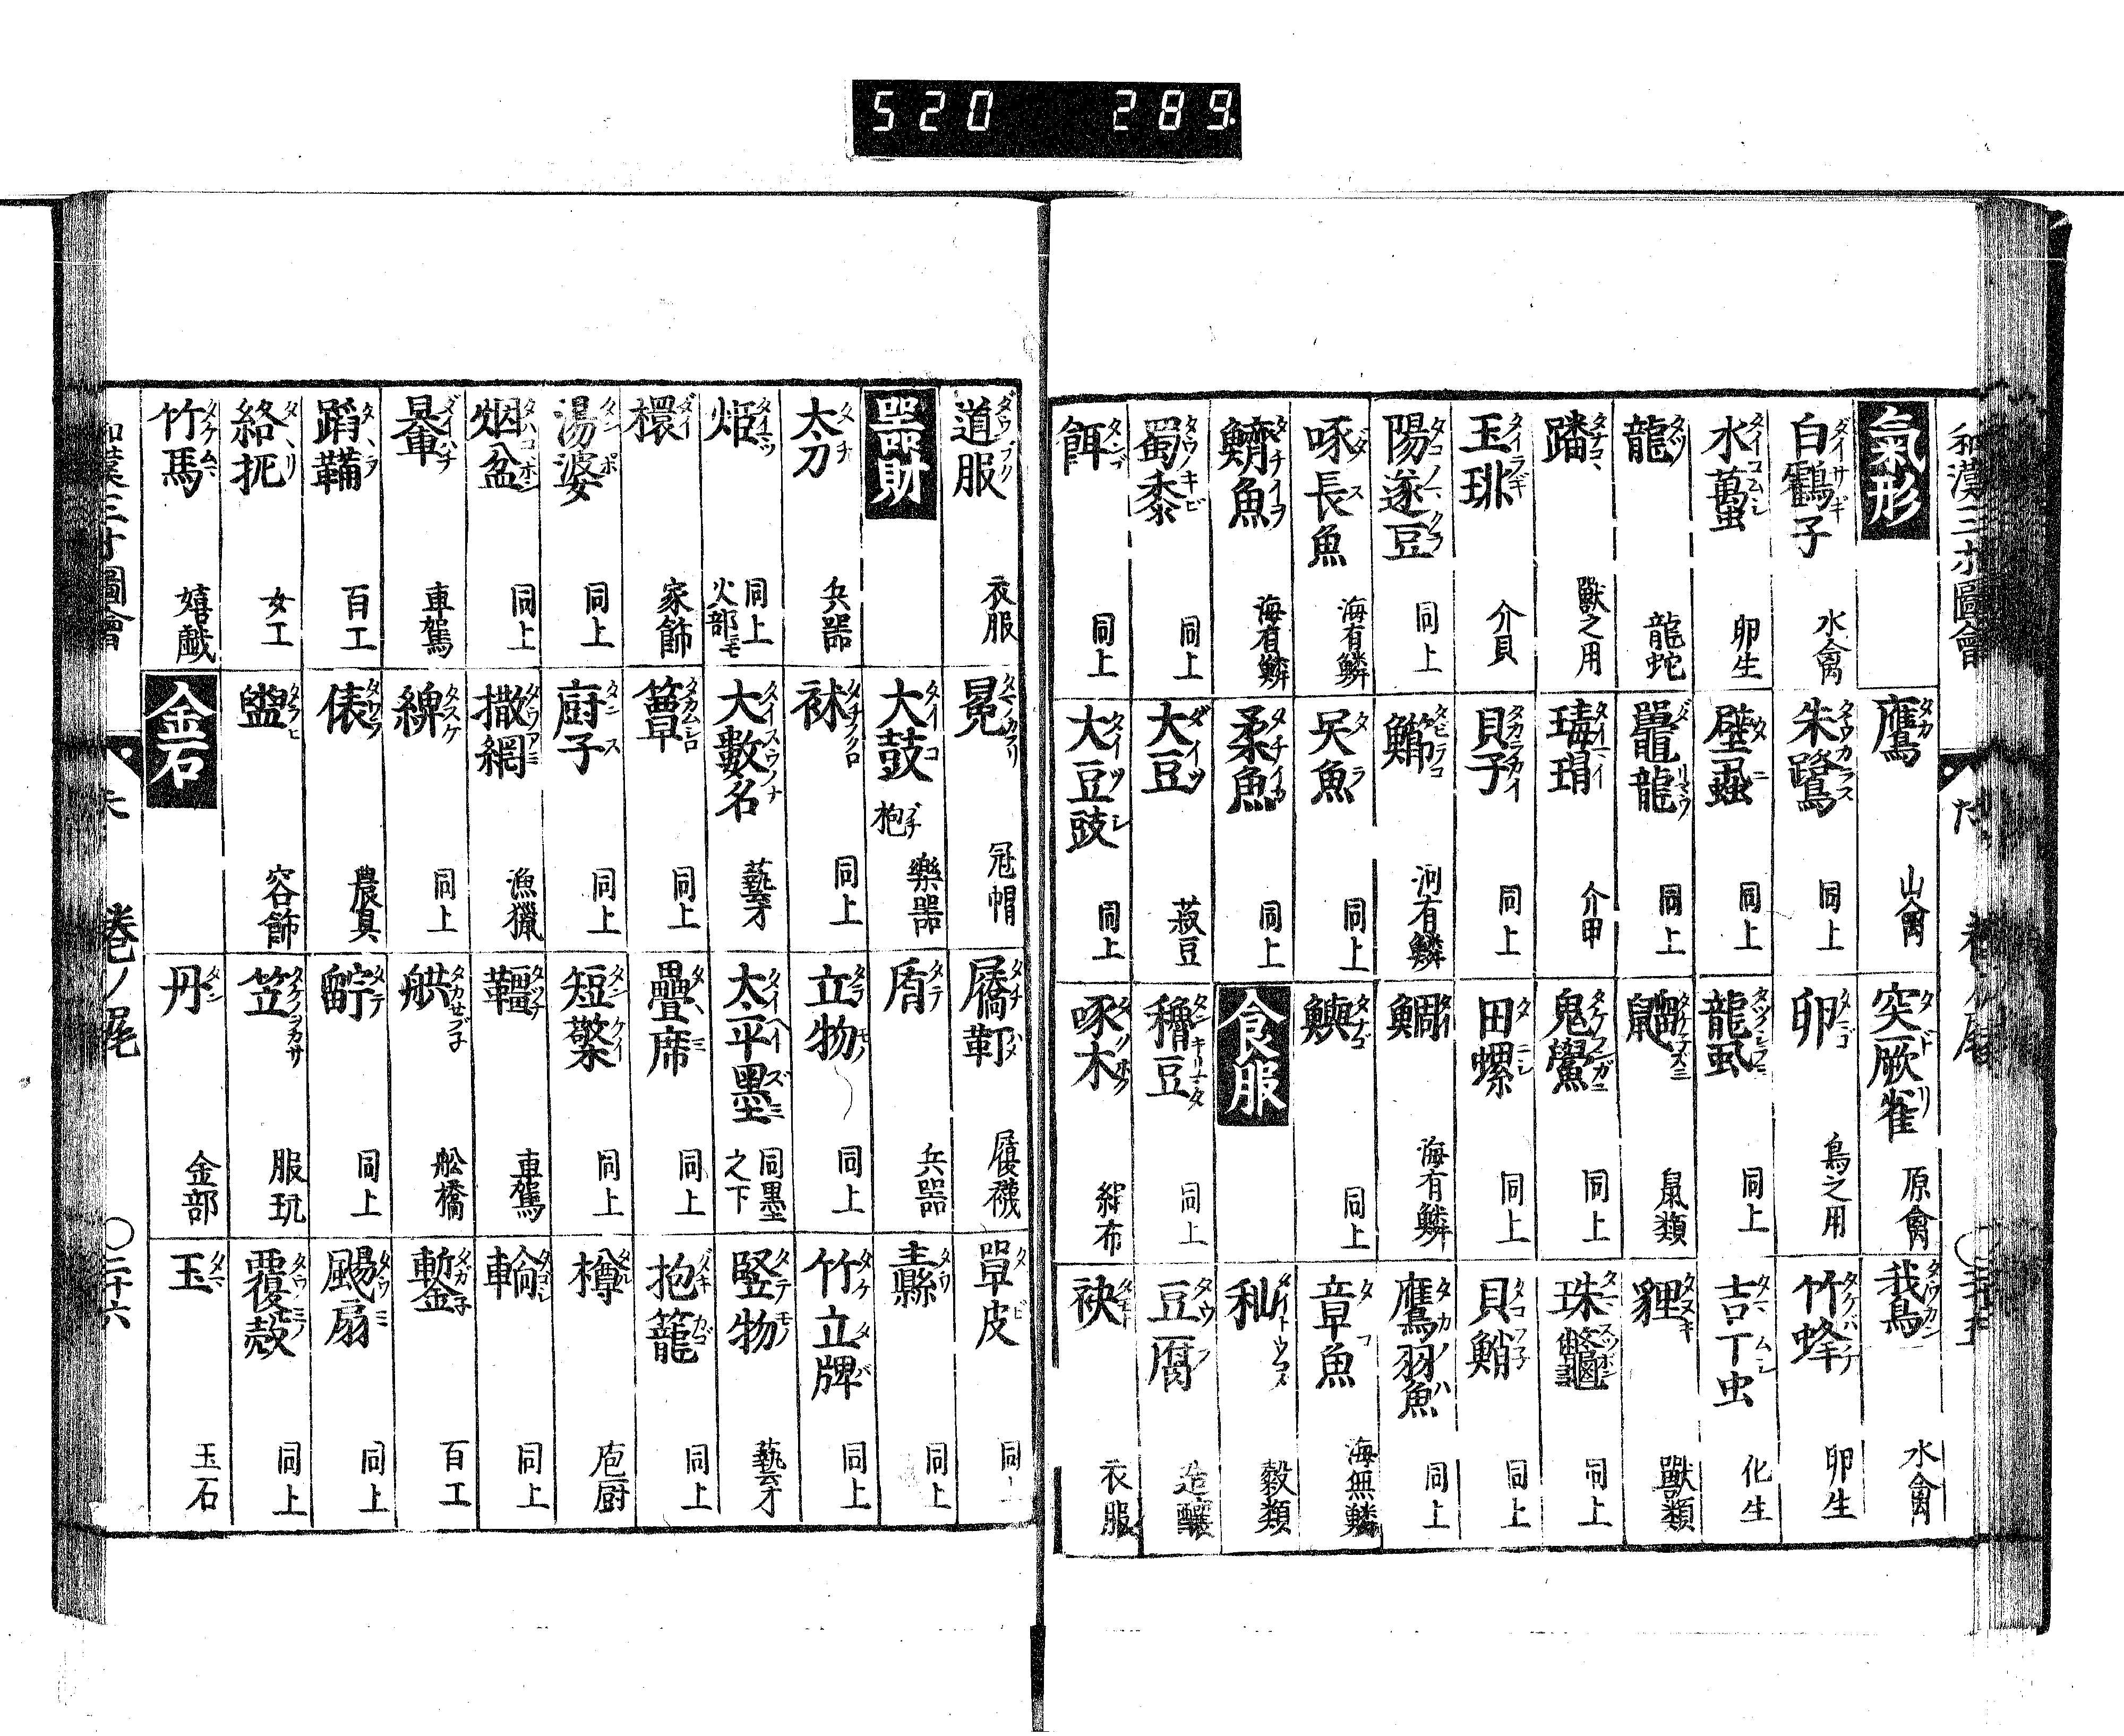 520 289
和漢三才圖會
氣形 鷹 タカ 山禽 突厥雀 タドリ 原禽 我鳥 タウカン 水禽
白鶴子 ダイサギ 水禽 朱鷺 タウカラス 同上 卵 タマゴ 鳥之用 竹蜂 タケバチ 卵生
水蠆 タイコムシ 卵生 壁蝨 タニ 同上 龍虱 同上 吉丁虫 タマムシ 化生
龍 タツ 龍蛇 鼉龍 同上 鼠類 貍 タヌキ 獸類
蹯 タナコヽロ 獸之用 瑇瑁 タイマイ 介甲 鬼鱟 タケフンガニ 同上 珠鼈 タマスツホン 同上
玉珧 タイラギ 介貝 貝子 タカラカイ 同上 田螺 タニシ 同上 貝鮹 タコフ子 同上
陽遂豆 タコノマクラ 同上 鰤 河有鱗 鯛 タイ 海有鱗 鷹羽魚 タカノハ 同上
啄長魚 ダス 海有鱗 吴魚 タラ 同上 鱮 タナゴ 同上 章魚 タコ 海無鱗
魚 タチイヲ 海有鱗 柔魚 タチイカ 同上 食服 秈 タイトウコメ 穀類
蜀黍 タウノキビ 同上 大豆 ダイヅ 菽豆 穭豆 タンキリマメ 同上 豆腐 タウフ 造釀
餌 タンゴ 同上 大豆豉 タイツシ 同上 啄木 タクホク 絹布 袂 タモト 衣服
道服 ダウブク 衣服 冕 タマノカフリ 冠帽 屩靪 タチハメ 履襪 單皮 タビ 同上
噐財 大鼓 タイコ 枹 バチ 樂噐 盾 タテ 兵噐 纛 同上
太刀 タチ 兵噐 袜 タチフクロ 同上 立物 タテモノ 同上 竹立牌 タケタバ 同上
炬 タイマツ 同上 火部モ 大數名 タイスウノナ 藝才 太平墨 タイヘイズミ 同墨之下 竪物 タテモノ 藝才
檈 ダイ 家飾 簟 タカムシロ 同上 疊席 タヽミ 同上 抱籠 ダキカゴ 同上
湯婆 タンポ 同上 厨子 タンス 同上 短檠 タンケイ 同上 樽 タル 庖厨
烟盆 タバコボン 同上 撒網 タウアミ 漁獵 韁 タヅナ 車駕 輪 同上
車駕 繂 タスケ 同上 舼 タカセブ子 舩橋 鏨 タガ子 百工
蹈鞴 タヽラ 百工 俵 タワラ 農具 同上 颺扇 タウミ 同上
絡扼 タヽリ 女工 盥 タラヒ 容飾 笠 タケノコカサ 服玩 覆殼 タウミノ 同上
竹馬 タケムマ 嬉戯 金石 丹 タン 金部 玉 タマ 玉石
和漢三才圖會 大 巻ノ尾 〇二十六